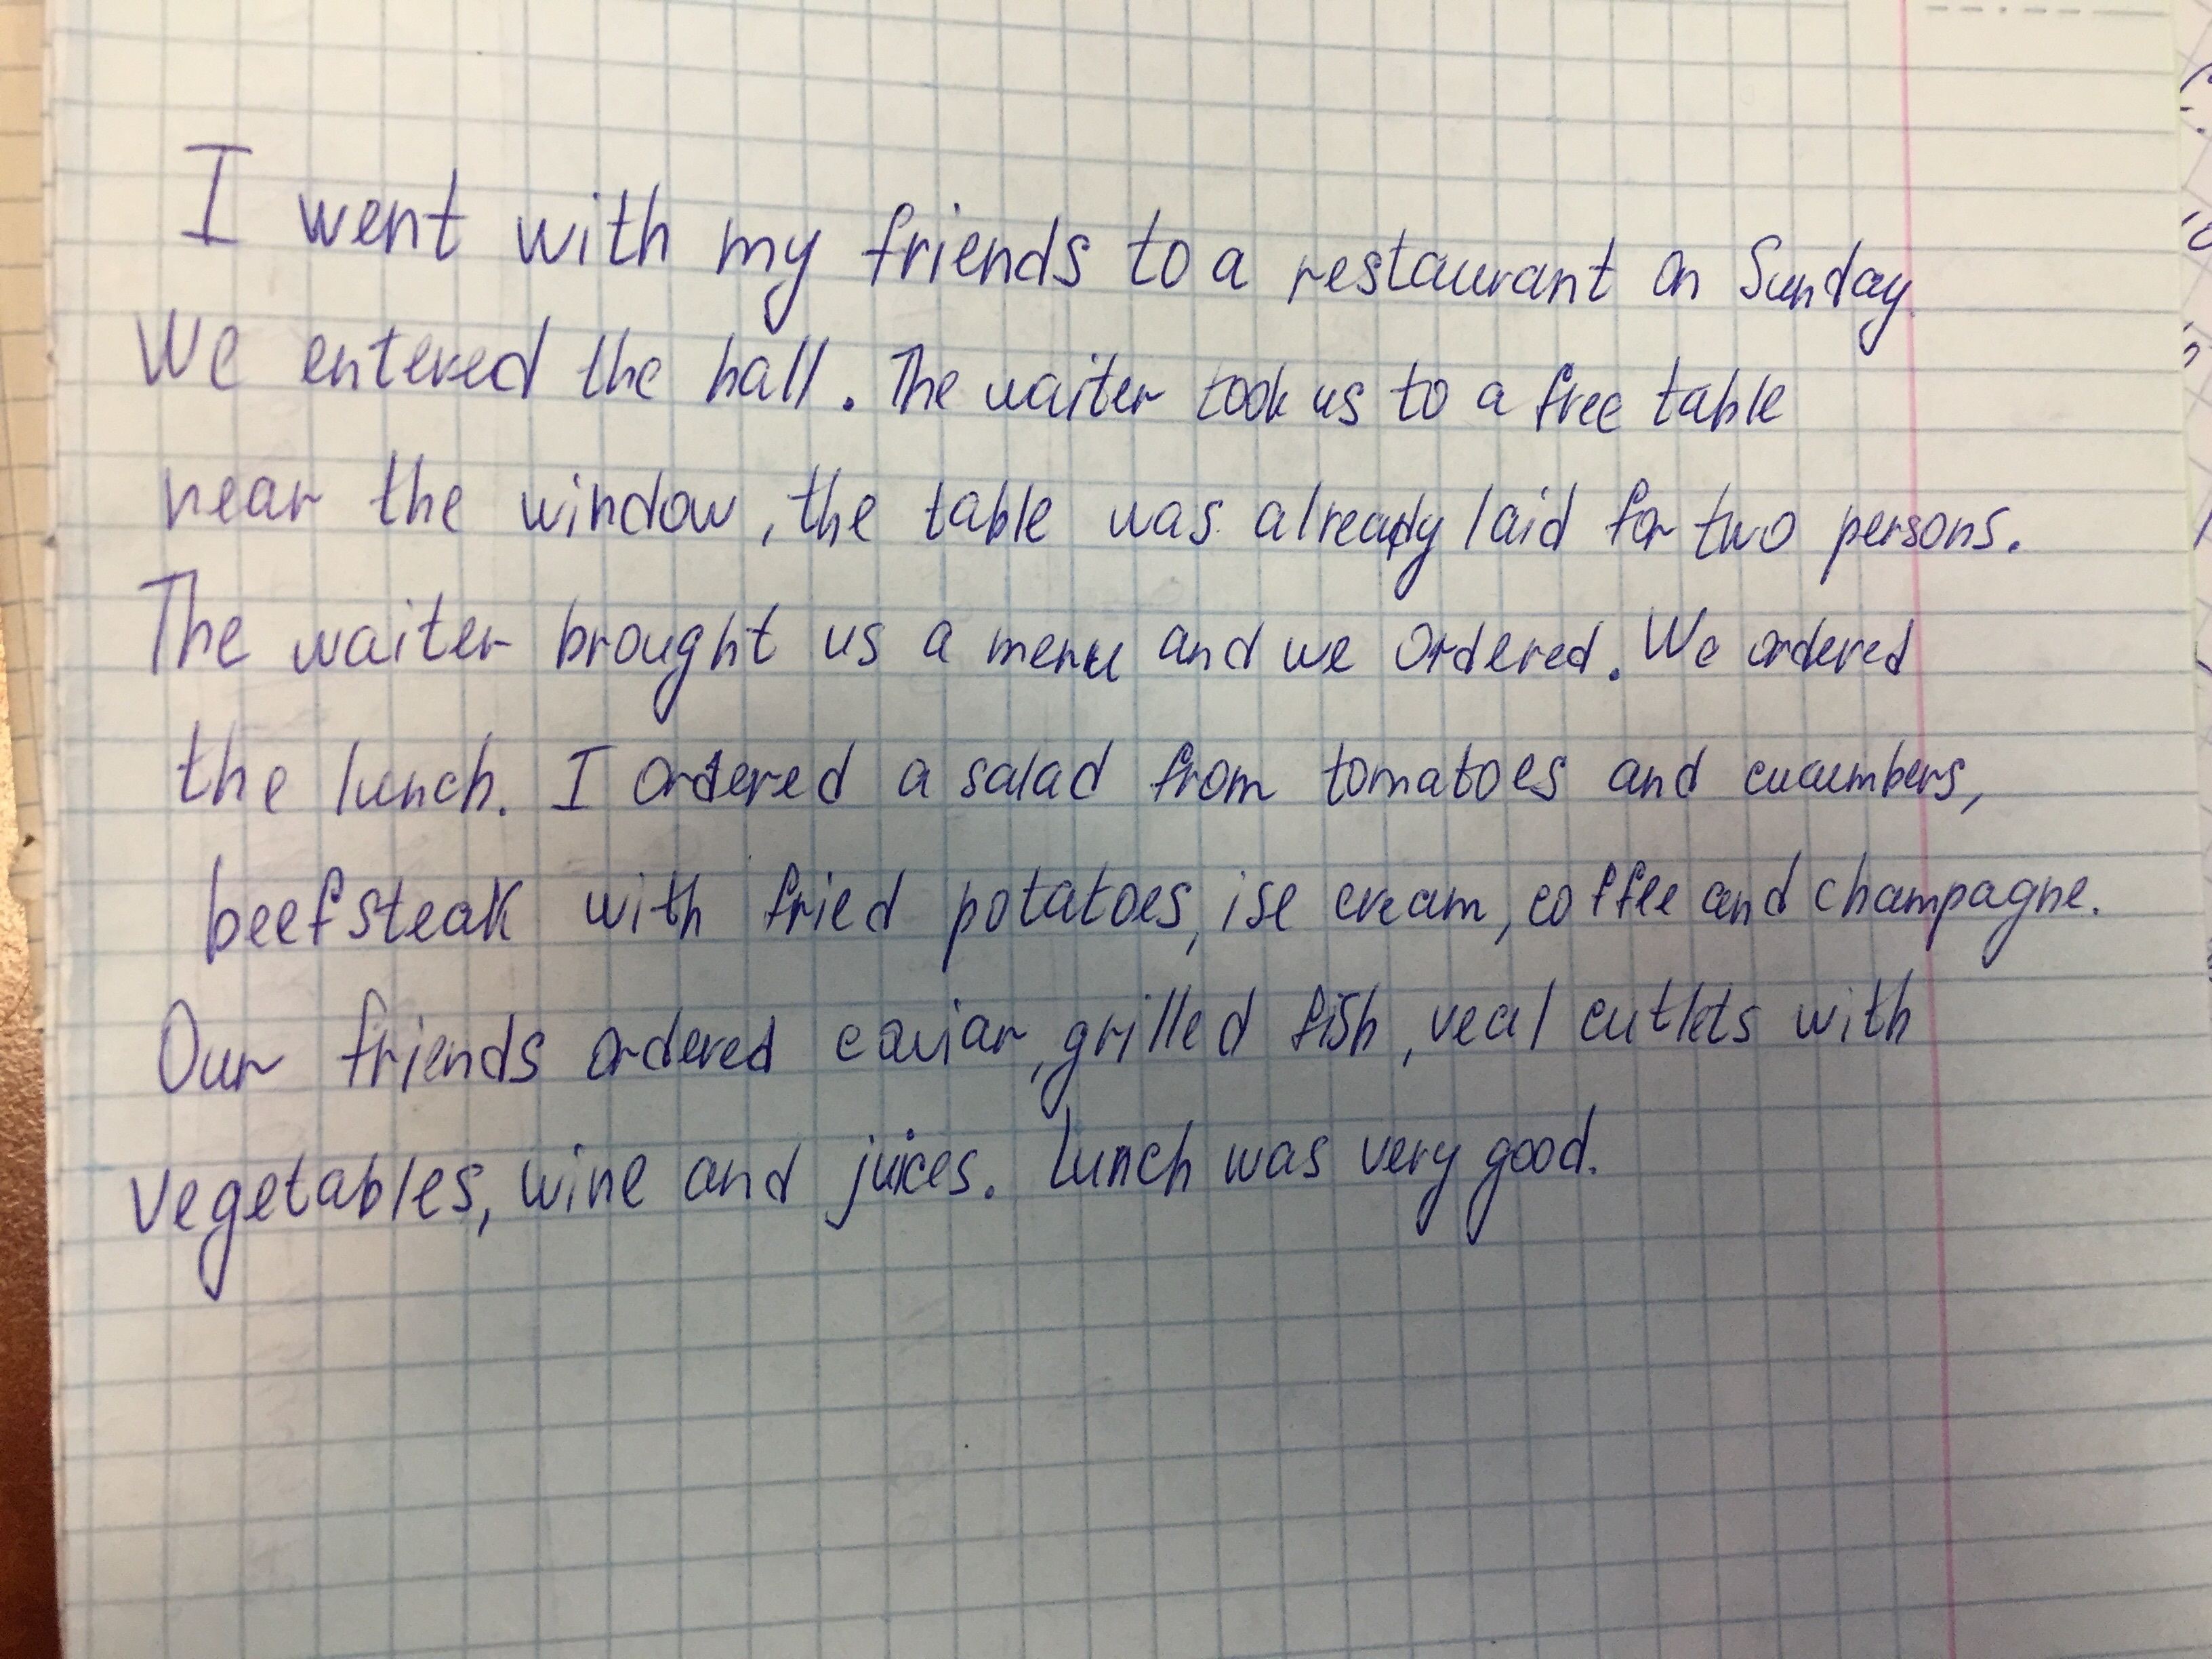 I went with my friends to a restaurant on Sunday.
We entered the hall. The waiter took us to a free table
near the window, the table was already laid for two persons.
The waiter brought us a menu and we ordered. We ordered
the lunch. I ordered a salad from tomatoes and cucumbers,
beefsteak with fried potatoes, ise cream, coffee and champagne.
Our friends ordered caviar, grilled fish, veal cutlets with
vegetables, wine and juices. Lunch was very good.